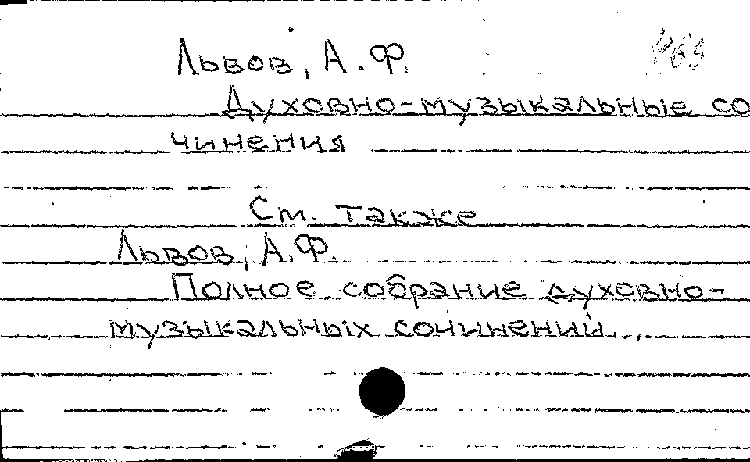 Львов, А.Ф.
Духовно-музыкальные со
чинения
См. также
Львов, А.Ф.
Полное собрание духовно-
музыкальных сочинений..